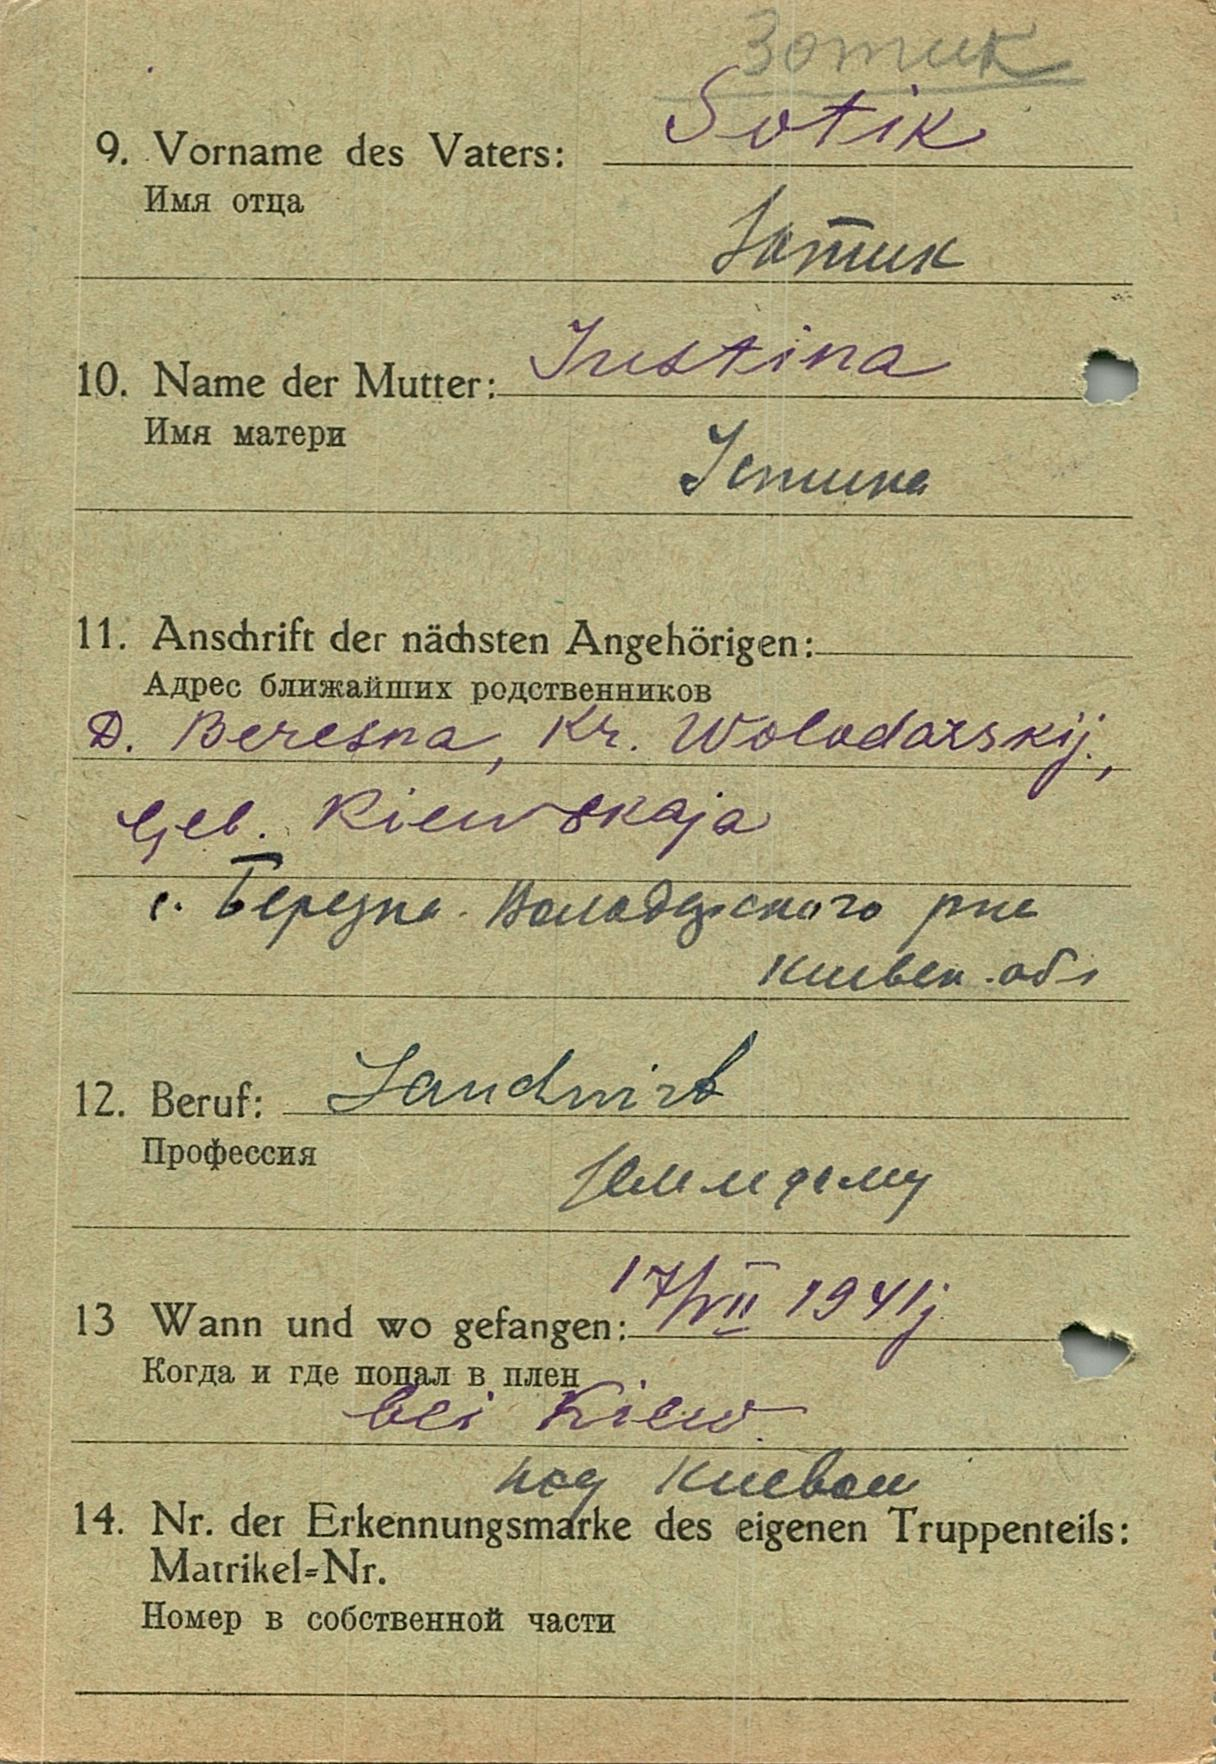 Зотик
9. Vorname des Vaters: Sotik
Имя отца
Зотик
10. Name der Mutter: Justina
Имя матери
Устина
11. Anschrift der nächsten Angehörigen:
Адрес ближайших родственников
D. Beresna, Kr. Wolodarskij,
Geb. Kiewskaja
с. Березна Володарского р-на
Киевск. обл
12. Beruf: Landwirt
Профессия
13 Wann und wo gefangen: 17/VII 1941j.
Когда и где попал в плен
bei Kiew.
под Киевом
14. Nr. der Erkennungsmarke des eigenen Truppenteils:
Matrikel=Nr.
Номер в собственной части